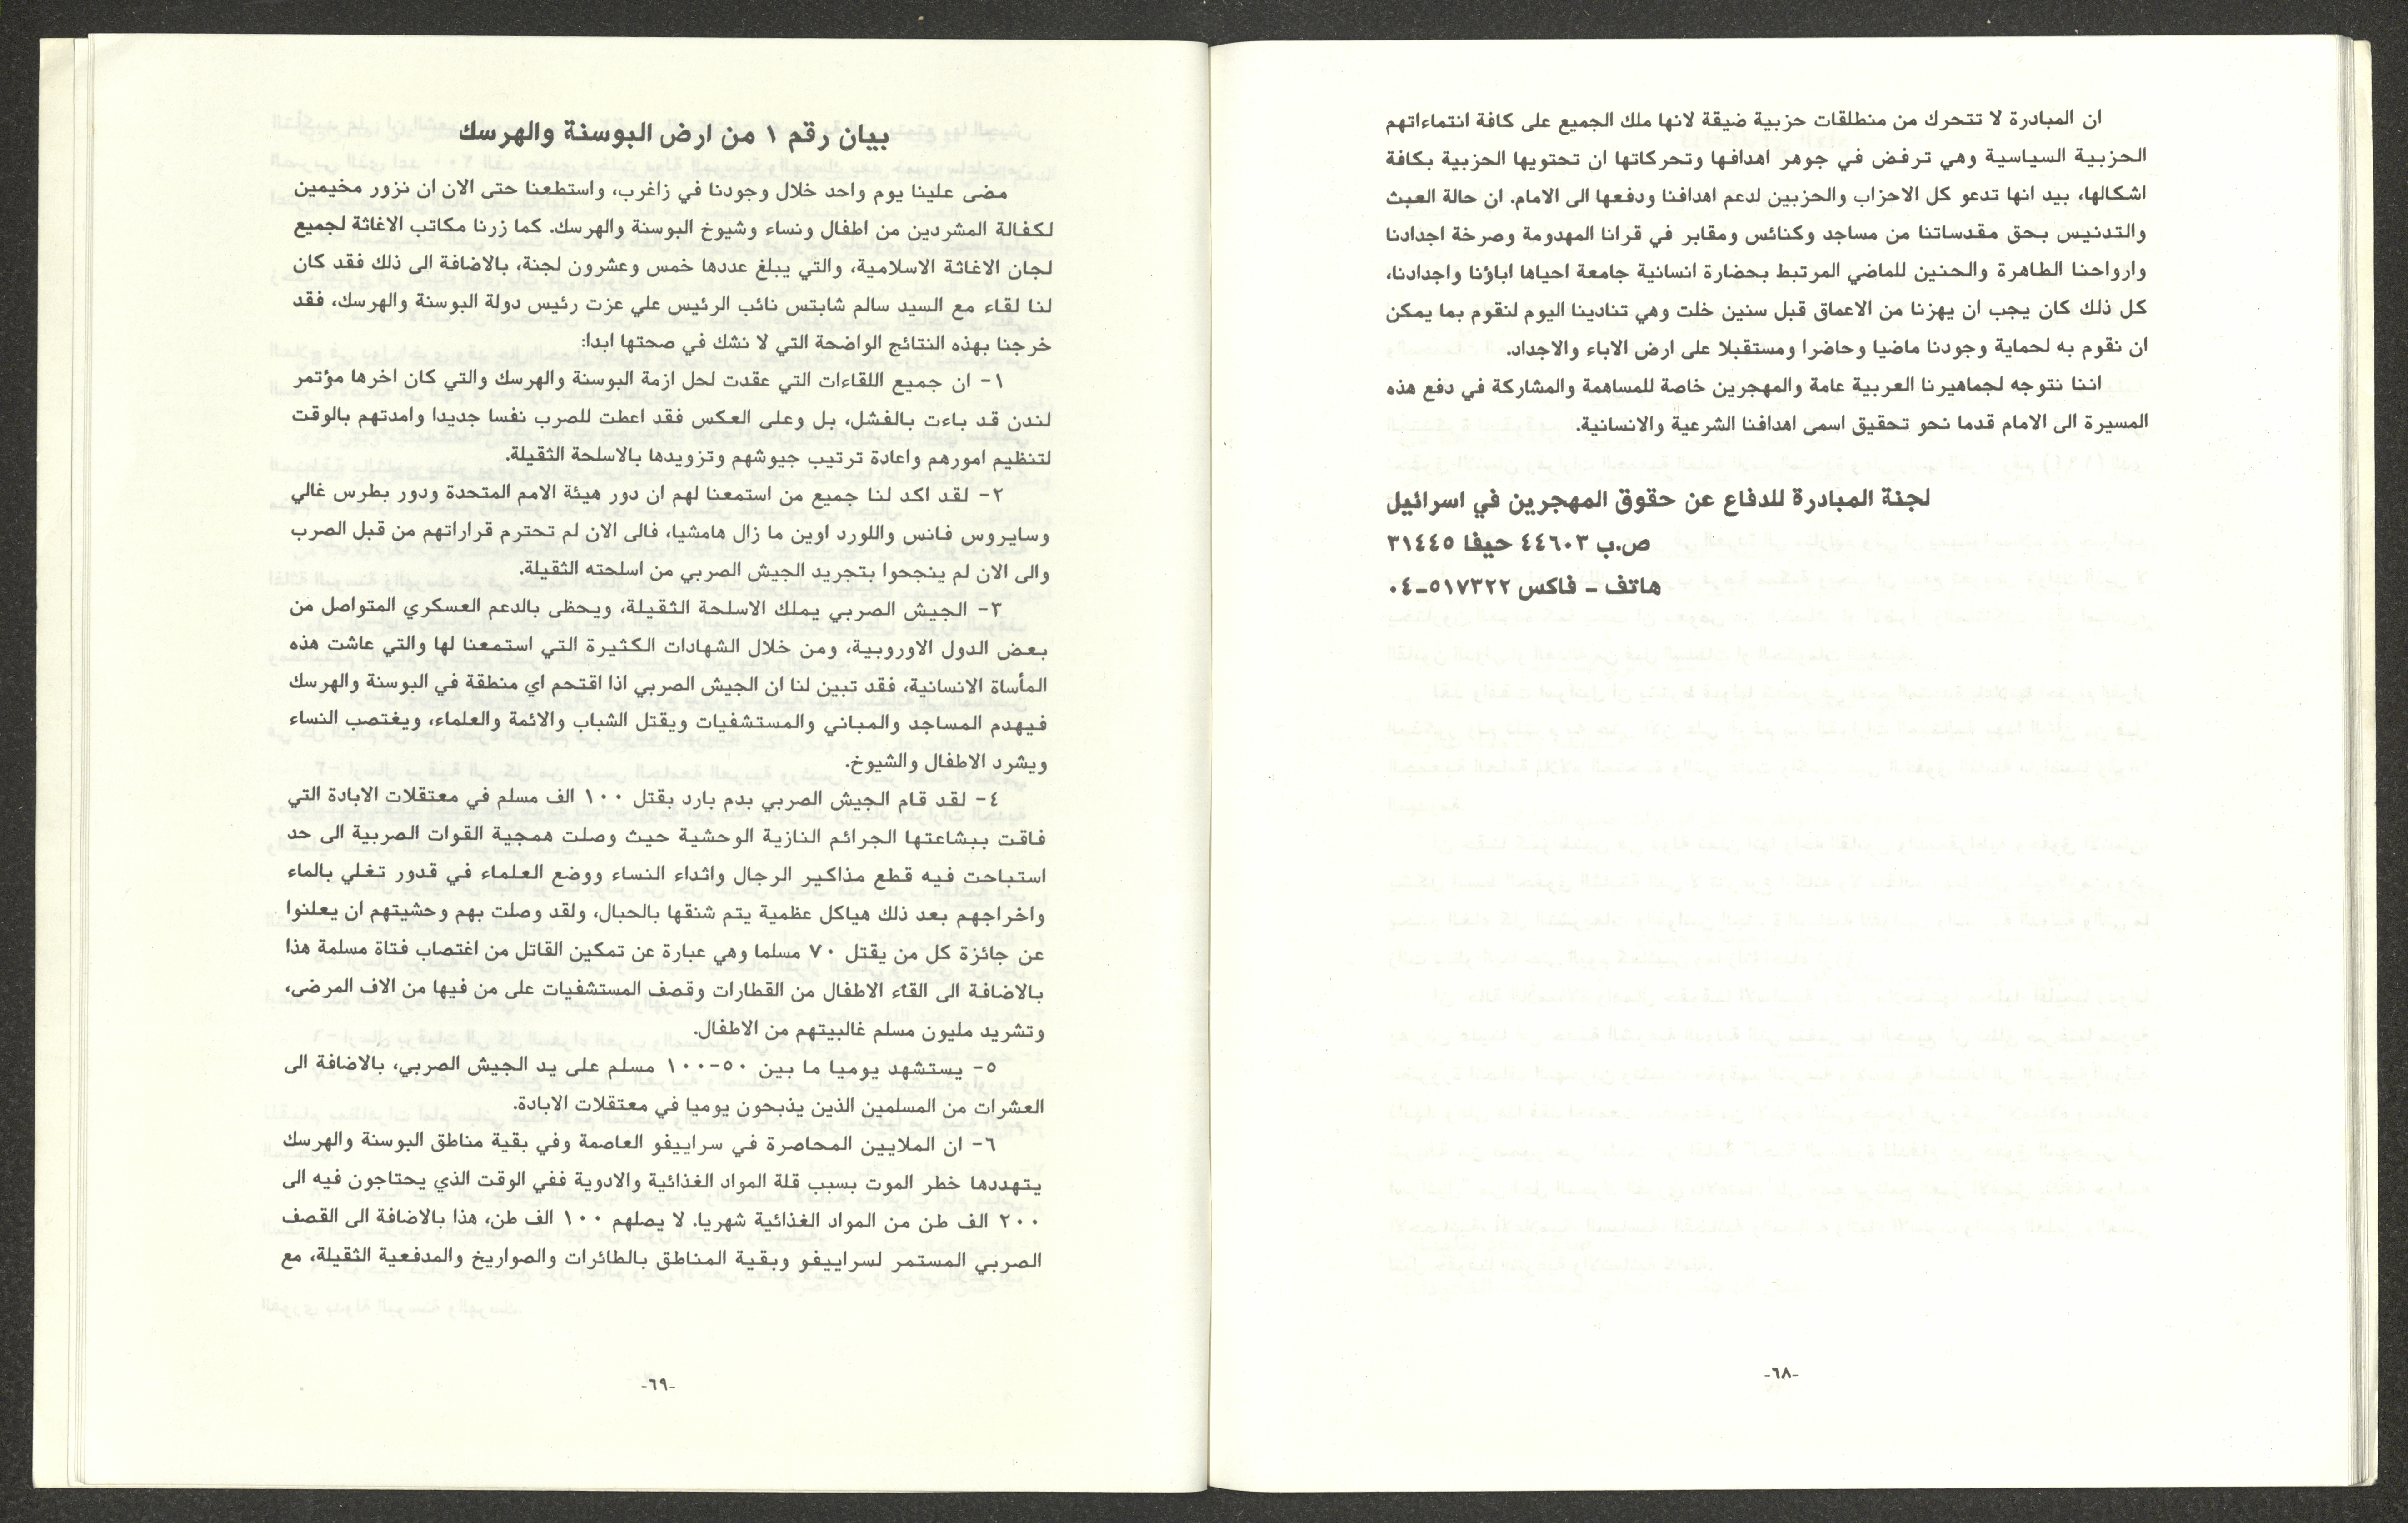 ان المبادرة لا تتحرك من منطلقات حزبية ضيقة لانها ملك الجميع على كافة انتماءاتهم
الحزبية السياسية وهي ترفض في جوهر اهدافها وتحركاتها ان تحتويها الحزبية بكافة
اشكالها، بيد انها تدعو كل الاحزاب والحزبين لدعم اهدافنا ودفعها الى الامام. ان حالة العبث
والتدنيس بحق مقدساتنا من مساجد وكنائس ومقابر في قرانا المهدومة وصرخة اجدادنا
وارواحنا الطاهرة والحنين للماضي المرتبط بحضارة انسانية جامعة احياها اباؤنا واجدادنا،
كل ذلك كان يجب ان يهزنا من الاعماق قبل سنين خلت وهي تنادينا اليوم لنقوم بما يمكن
ان نقوم به لحماية وجودنا ماضيا وحاضرا ومستقبلا على ارض الاباء والاجداد.
اننا نتوجه لجماهيرنا العربية عامة والمهجرين خاصة للمساهمة والمشاركة في دفع هذه
المسيرة الى الامام قدما نحو تحقيق اسمى اهدافنا الشرعية والانسانية.
لجنة المبادرة للدفاع عن حقوق المهجرين في اسرائيل
ص.ب ٤٤٦٠٣ حيفا ٣١٤٤٥
هاتف – فاكس ٥١٧٣٢٢–٠٤
-٦٨-
بيان رقم ١ من ارض البوسنة والهرسك
مضى علينا يوم واحد خلال وجودنا في زاغرب، واستطعنا حتى الان ان نزور مخيمين
لكفالة المشردين من اطفال ونساء وشيوخ البوسنة والهرسك. كما زرنا مكاتب الاغاثة لجميع
لجان الاغاثة الاسلامية، والتي يبلغ عددها خمس وعشرون لجنة، بالاضافة الى ذلك فقد كان
لنا لقاء مع السيد سالم شابتس نائب الرئيس علي عزت رئيس دولة البوسنة والهرسك، فقد
خرجنا بهذه النتائج الواضحة التي لا نشك في صحتها ابدا:
١- ان جميع اللقاءات التي عقدت لحل ازمة البوسنة والهرسك والتي كان اخرها مؤتمر
لندن قد باءت بالفشل، بل وعلى العكس فقد اعطت للصرب نفسا جديدا وامدتهم بالوقت
لتنظيم امورهم واعادة ترتيب جيوشهم وتزويدها بالاسلحة الثقيلة.
٢- لقد اكد لنا جميع من استمعنا لهم ان دور هيئة الامم المتحدة ودور بطرس غالي
وسايروس فانس واللورد اوين ما زال هامشيا، فالى الان لم تحترم قراراتهم من قبل الصرب
والى الان لم ينجحوا بتجريد الجيش الصربي من اسلحته الثقيلة.
٣- الجيش الصربي يملك الاسلحة الثقيلة، ويحظى بالدعم العسكري المتواصل من
بعض الدول الاوروبية، ومن خلال الشهادات الكثيرة التي استمعنا لها والتي عاشت هذه
المأساة الانسانية، فقد تبين لنا ان الجيش الصربي اذا اقتحم اي منطقة في البوسنة والهرسك
فيهدم المساجد والمباني والمستشفيات ويقتل الشباب والائمة والعلماء، ويغتصب النساء
ويشرد الاطفال والشيوخ.
٤- لقد قام الجيش الصربي بدم بارد بقتل ١٠٠ الف مسلم في معتقلات الابادة التي
فاقت ببشاعتها الجرائم النازية الوحشية حيث وصلت همجية القوات الصربية الى حد
استباحت فيه قطع مذاكير الرجال واثداء النساء ووضع العلماء في قدور تغلي بالماء
واخراجهم بعد ذلك هياكل عظمية يتم شنقها بالحبال، ولقد وصلت بهم وحشيتهم ان يعلنوا
عن جائزة كل من يقتل ٧٠ مسلما وهي عبارة عن تمكين القاتل من اغتصاب فتاة مسلمة هذا
بالاضافة الى القاء الاطفال من القطارات وقصف المستشفيات على من فيها من الاف المرضى،
وتشريد مليون مسلم غالبيتهم من الاطفال.
٥- يستشهد يوميا ما بين ٥٠-١٠٠ مسلم على يد الجيش الصربي، بالاضافة الى
العشرات من المسلمين الذين يذبحون يوميا في معتقلات الابادة.
٦- ان الملايين المحاصرة في سراييفو العاصمة وفي بقية مناطق البوسنة والهرسك
يتهددها خطر الموت بسبب قلة المواد الغذائية والادوية ففي الوقت الذي يحتاجون فيه الى
٢٠٠ الف طن من المواد الغذائية شهريا. لا يصلهم ١٠٠ الف طن، هذا بالاضافة الى القصف
الصربي المستمر لسراييفو وبقية المناطق بالطائرات والصواريخ والمدفعية الثقيلة، مع
-٦٩-